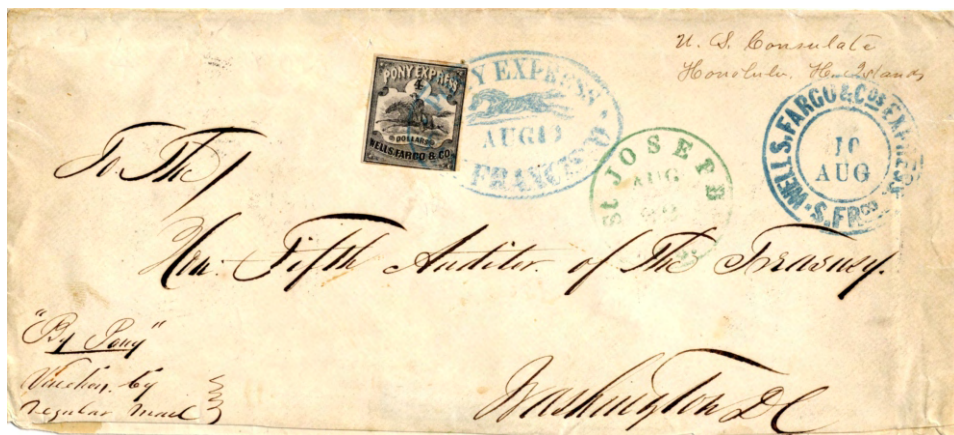 U. S. Consulate
Honolulu, H Islands
PONY EXPRESS
4
DOLLARS
WELLS. FARGO & CO
Y EXPRESS
AUG
FRANCISCO
St JOSEPH
AUG
WELLS, FARGO & Cos EXPRESS
10
AUG
S. FRco
To The
Hon. Fifth Auditor. of The Treasury.
"By Pony"
by
regular mail
Washington DC